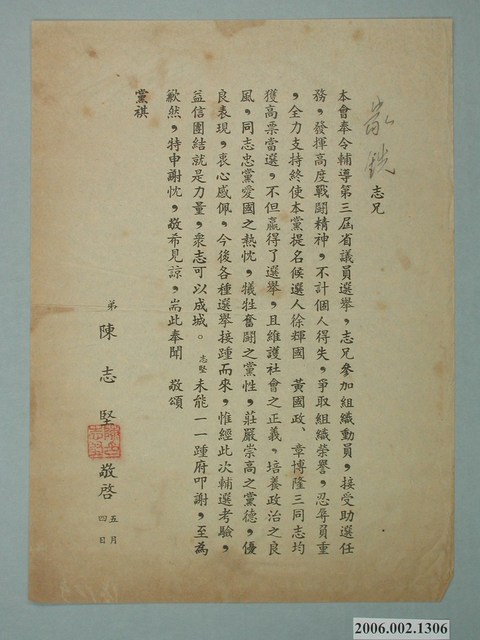 志兄
本會奉令輔導第三屆省議員選舉，志兄參加組織動員，接受助選任
務，發揮高度戰鬪精神，不計個人得失，爭取組織榮譽，忍辱負重
，全力支持終使本黨提名候選人徐輝國　黃國政、章博隆三同志均
獲高票當選，不但贏得了選舉，且維護社會之正義。培養政治之良
風，同志忠黨愛國之熱忱，犠牲奮鬪之黨性，莊嚴崇高之黨德，優
良表現，衷心感佩，今後各種選舉接踵而來，惟經此次輔選考驗，
益信團結就是力量，衆志可以成城。志堅未能一一踵府叩謝，至為
歉然，特申謝忱，敬希見諒，耑此奉聞　敬頌
黨祺
弟　陳志堅　敬啓　五月四日
2006.002.1306